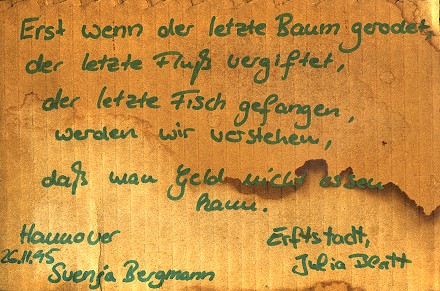 Erst wenn der letzte Baum gerodet,
der letzte Fluß vergiftet,
der letzte Fisch gefangen,
werden wir verstehen,
daß man Geld nicht essen
kann.
Hannover
26.11.95
Svenja Bergmann
Erftstadt,
Julia Blatt